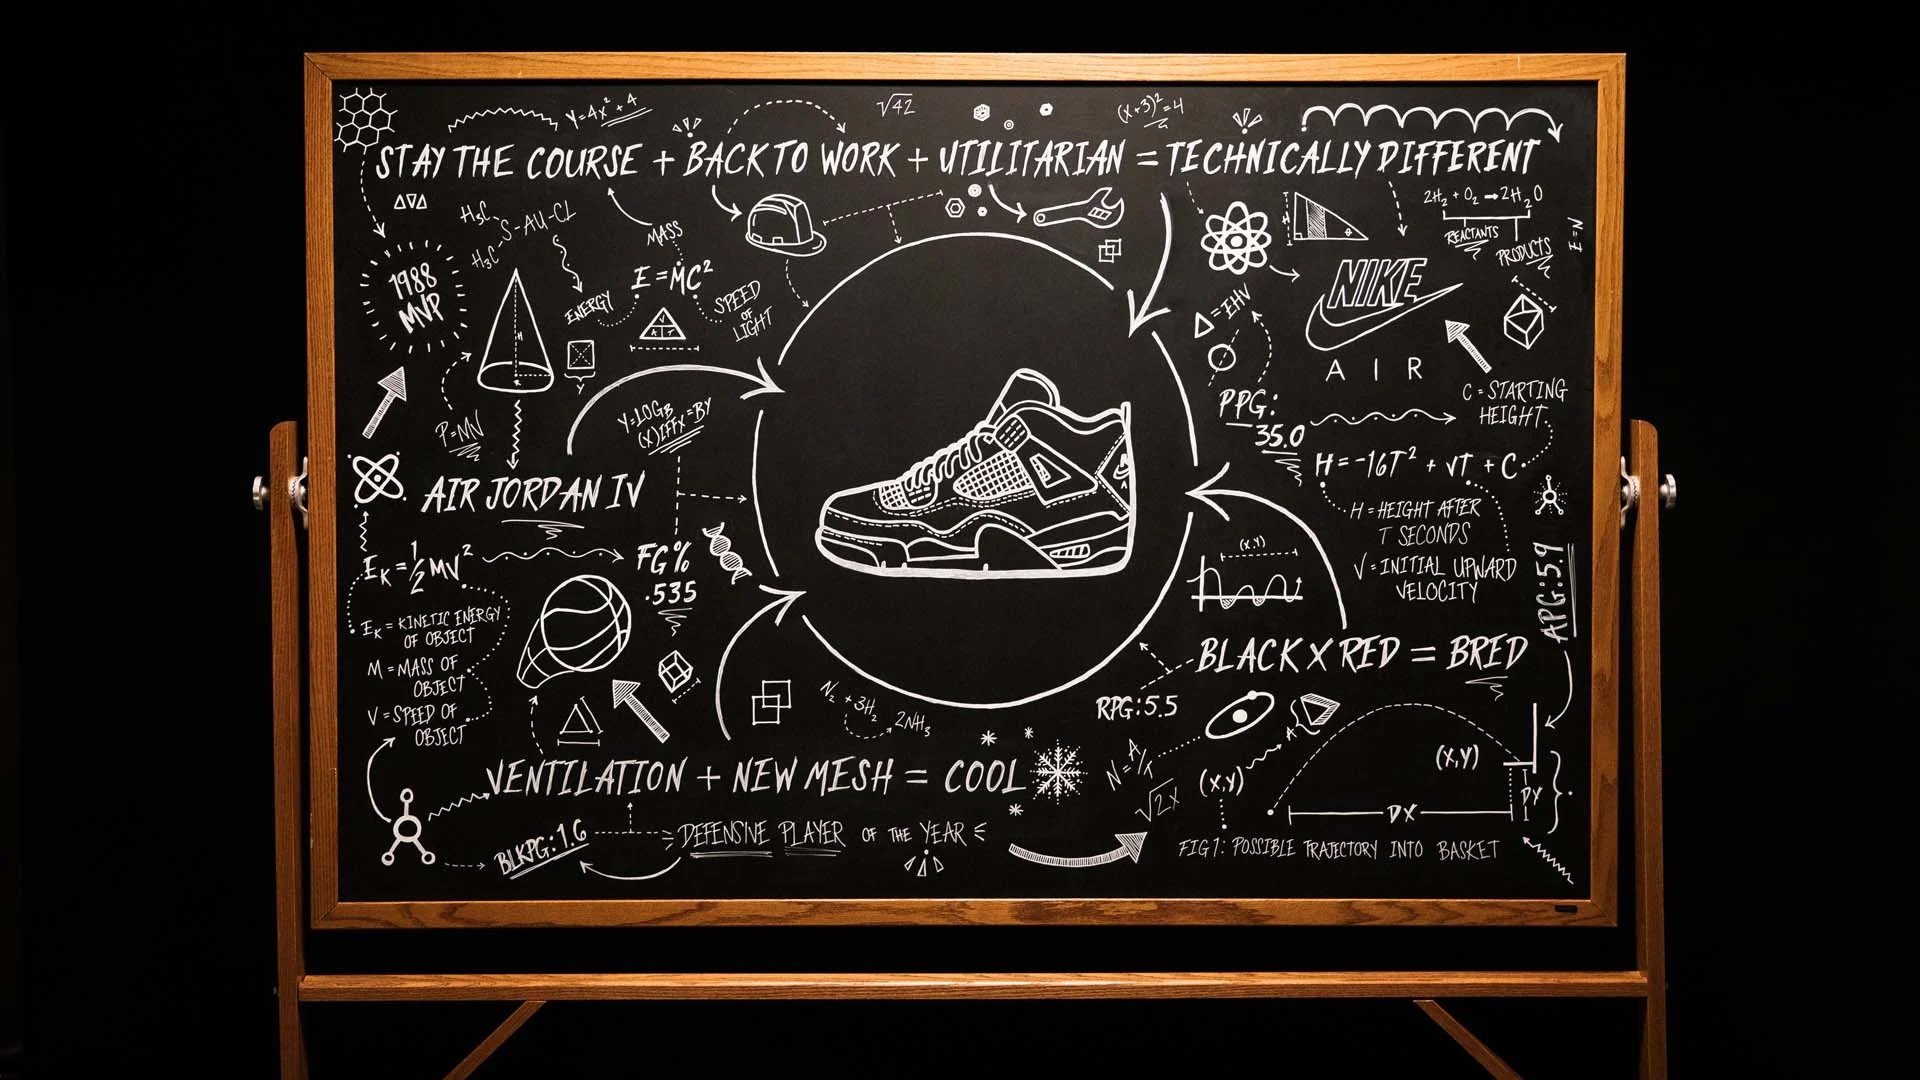 Y=4X²+4
√42
(X+3)²=4
STAY THE COURSE + BACK TO WORK + UTILITARIAN = TECHNICALLY DIFFERENT
2H₂ + O₂ → 2H₂O
REACTANTS
PRODUCTS
E=N
H₃C
S-AU-CL
H₃C
MASS
E=MC²
ENERGY
SPEED
OF
LIGHT
1988
MVP
H
R
V
Y
P=MV
Y=LOGB
(X)IFFX=BY
AIR JORDAN IV
NIKE
AIR
Δ=EHV
PPG:
35.0
C=STARTING
HEIGHT
H=-16T² + VT + C
H=HEIGHT AFTER
T SECONDS
V=INITIAL UPWARD
VELOCITY
APG:5.9
EK=½MV²
EK=KINETIC ENERGY
OF OBJECT
M=MASS OF
OBJECT
V=SPEED OF
OBJECT
FG%
.535
(X,Y)
BLACK X RED = BRED
RPG:5.5
N₂ + 3H₂
2NH₃
VENTILATION + NEW MESH = COOL
BLKPG:1.6
DEFENSIVE PLAYER OF THE YEAR
√2X
(X,Y)
(X,Y)
DX
DY
FIG 1: POSSIBLE TRAJECTORY INTO BASKET